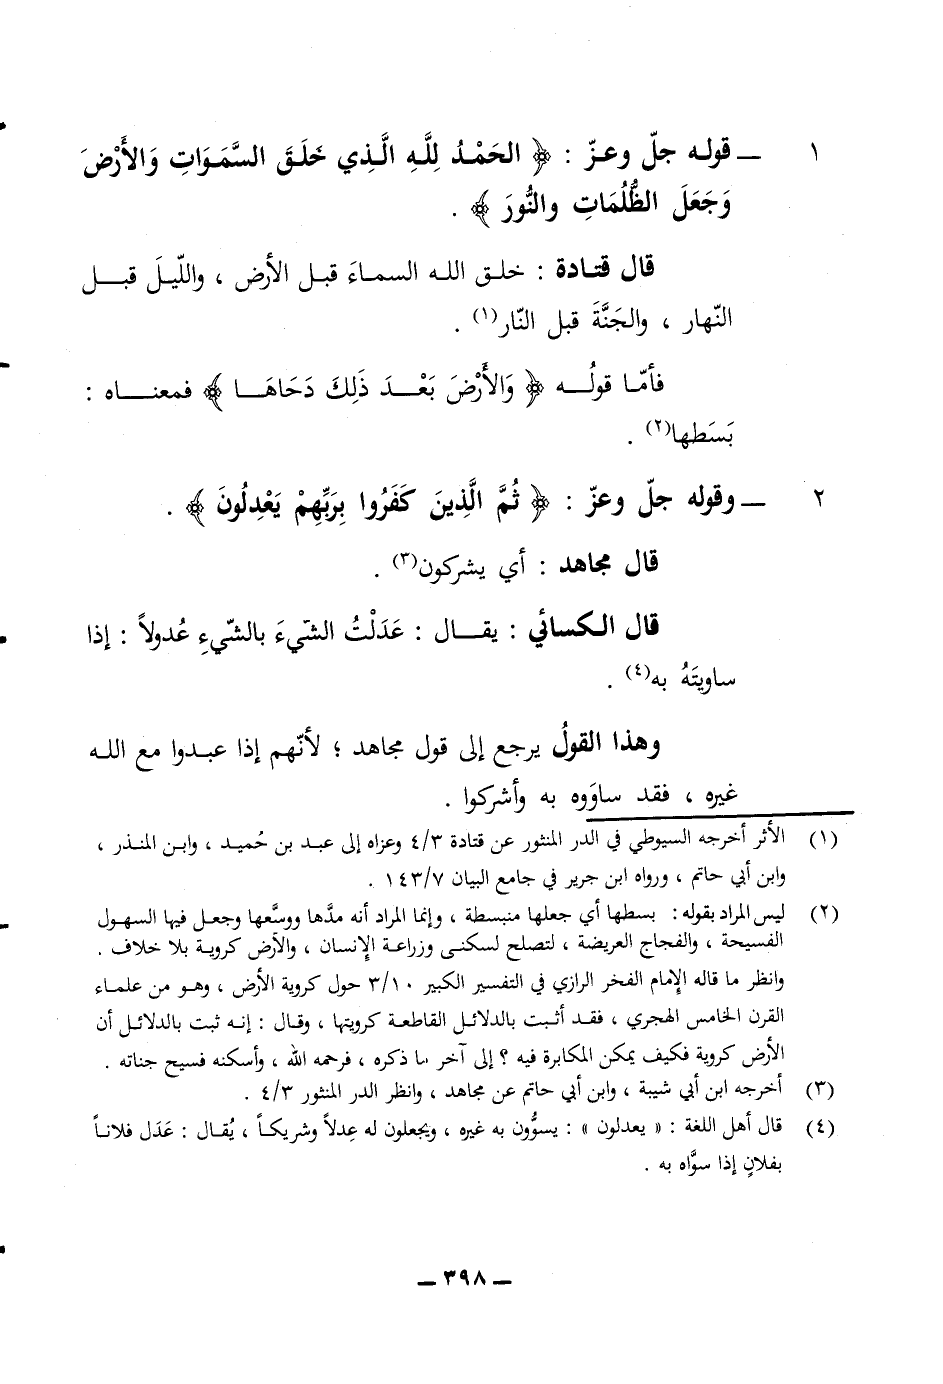 ١ ــ قوله جلّ وعزّ : ﴿ الحَمْدُ لِلَّهِ الَّذِي خَلَقَ السَّمَوَاتِ وَالأَرْضَ
وَجَعَلَ الظُّلُمَاتِ والنُّورَ ﴾ .
قال قتادة : خلق الله السماءَ قبل الأرض ، واللّيلَ قبل
النّهار ، والجَنَّةَ قبل النّار(١) .
فأمّا قولُه ﴿ وَالأَرْضَ بَعْدَ ذَلِكَ دَحَاهَا ﴾ فمعناه :
بَسَطها(٢) .
٢ ــ وقوله جلّ وعزّ : ﴿ ثُمَّ الَّذِينَ كَفَرُوا بِرَبِّهِمْ يَعْدِلُونَ ﴾ .
قال مجاهد : أي يشركون(٣) .
قال الكسائي : يقال : عَدَلْتُ الشّيءَ بالشّيءِ عُدولاً : إذا
ساويتَهُ به(٤) .
وهذا القولُ يرجع إلى قول مجاهد ؛ لأنّهم إذا عبدوا مع الله
غيره ، فقد ساوَوه به وأشركوا .
(١) الأثر أخرجه السيوطي في الدر المنثور عن قتادة ٤/٣ وعزاه إلى عبد بن حُميد ، وابن المنذر ،
وابن أبي حاتم ، ورواه ابن جرير في جامع البيان ١٤٣/٧ .
(٢) ليس المراد بقوله : بسطها أي جعلها منبسطة ، وإنما المراد أنه مدَّها ووسَّعها وجعل فيها السهول
الفسيحة ، والفجاج العريضة ، لتصلح لسكنى وزراعة الإنسان ، والأرض كروية بلا خلاف .
وانظر ما قاله الإمام الفخر الرازي في التفسير الكبير ٣/١٠ حول كروية الأرض ، وهو من علماء
القرن الخامس الهجري ، فقد أثبت بالدلائل القاطعة كرويتها ، وقال : إنه ثبت بالدلائل أن
الأرض كروية فكيف يمكن المكابرة فيه ؟ إلى آخر ما ذكره ، فرحمه الله ، وأسكنه فسيح جناته .
(٣) أخرجه ابن أبي شيبة ، وابن أبي حاتم عن مجاهد ، وانظر الدر المنثور ٤/٣ .
(٤) قال أهل اللغة : « يعدلون » : يسوُّون به غيره ، ويجعلون له عِدلاً وشريكاً ، يُقال : عَدَل فلاناً
بفلانٍ إذا سوَّاه به .
ــ ٣٩٨ ــ